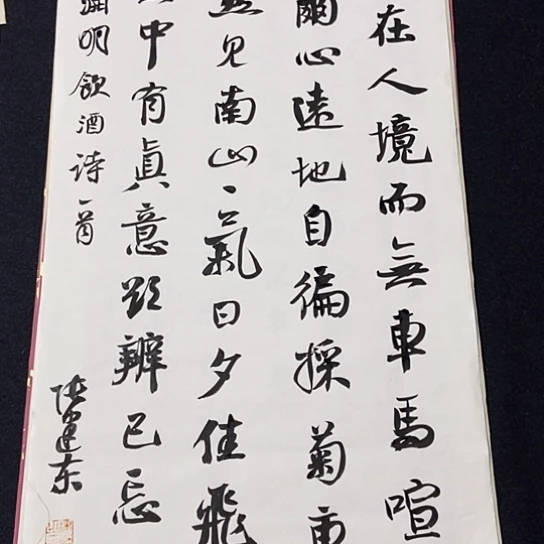 在人境而無車馬喧
爾心遠地自偏採菊東
然见南山山氣日夕佳飛
中有真意欲辨已忘
淵明飲酒诗一首
建东